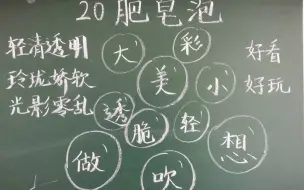 20 肥皂泡
轻清透明
玲珑娇软
光影零乱
大
彩
美
小
透
脆
轻
做
吹
想
好看
好玩